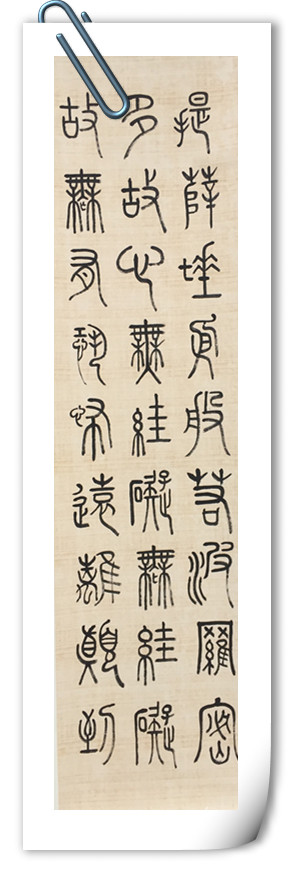 提薩埵依般若波羅密
多故心無絓礙無絓礙
故無有恐怖遠離顛到